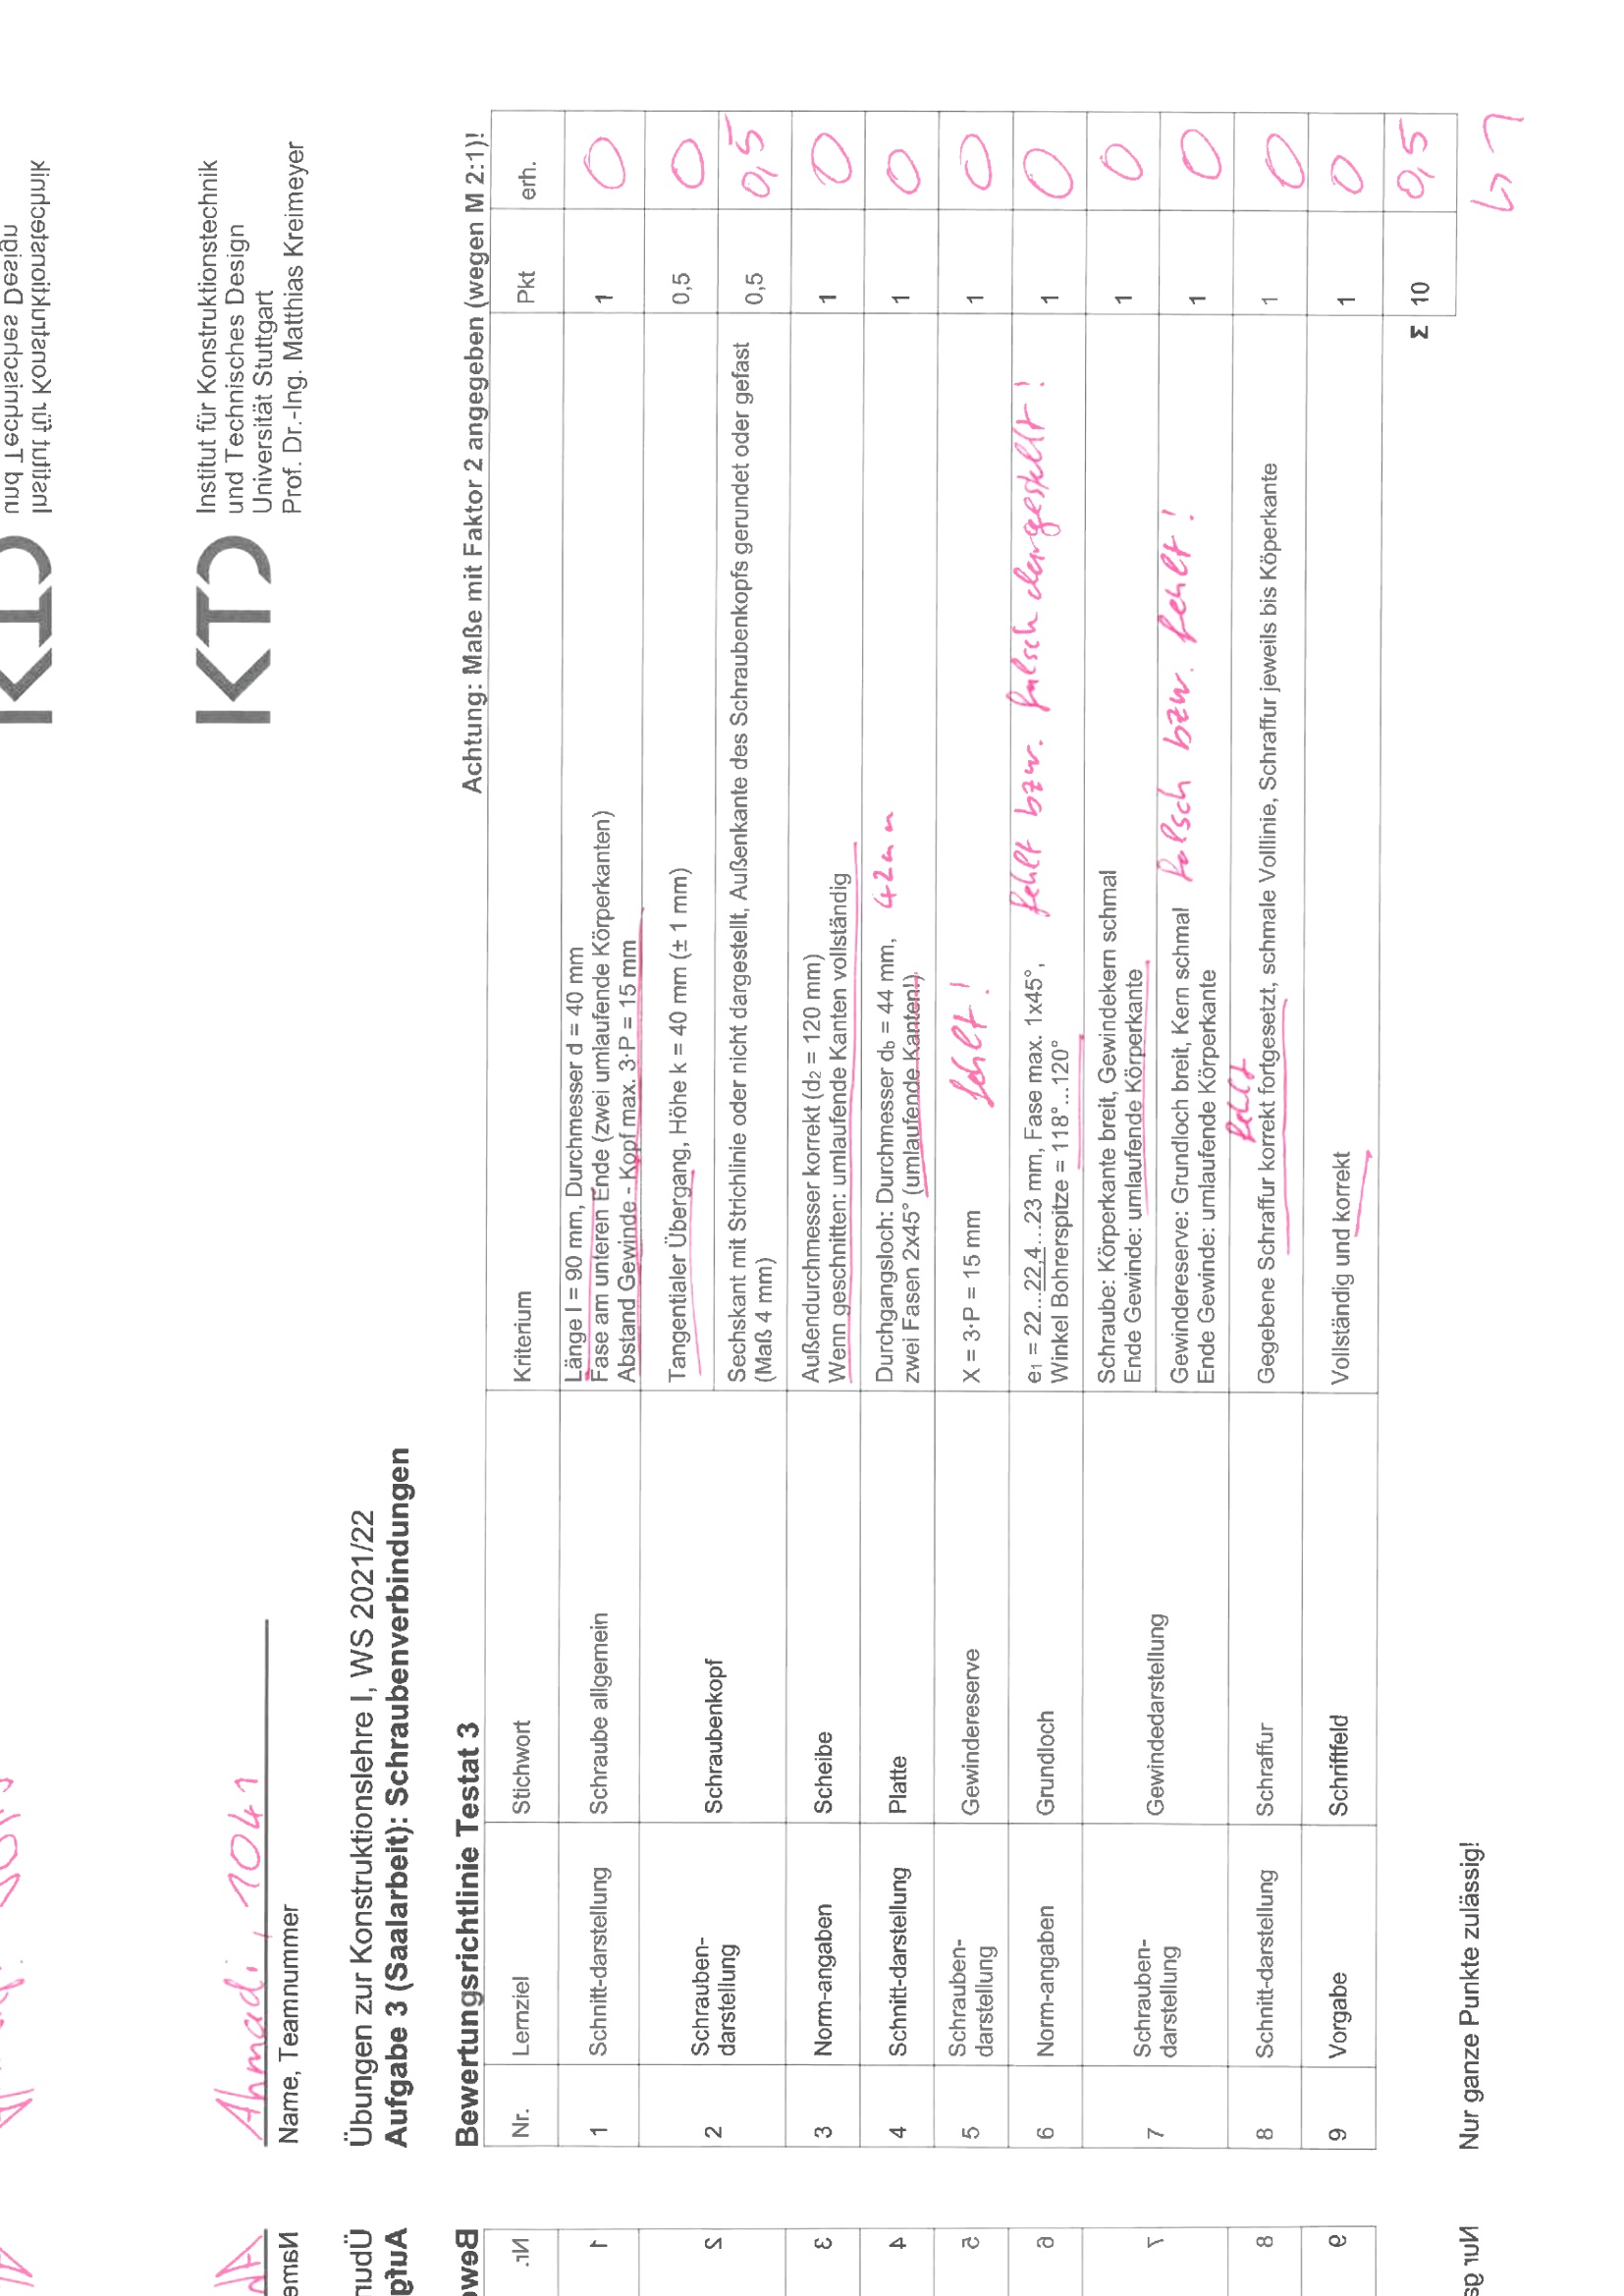 KTD
Institut für Konstruktionstechnik
und Technisches Design
Universität Stuttgart
Prof. Dr.-Ing. Matthias Kreimeyer
Ahmadi, 1041
Name, Teamnummer
Übungen zur Konstruktionslehre I, WS 2021/22
Aufgabe 3 (Saalarbeit): Schraubenverbindungen
Bewertungsrichtlinie Testat 3
Achtung: Maße mit Faktor 2 angegeben (wegen M 2:1)!
Nr. Lernziel Stichwort Kriterium Pkt erh.
1 Schnitt-darstellung Schraube allgemein Länge l = 90 mm, Durchmesser d = 40 mm
Fase am unteren Ende (zwei umlaufende Körperkanten)
Abstand Gewinde - Kopf max. 3·P = 15 mm 1 0
2 Schrauben-
darstellung Schraubenkopf Tangentialer Übergang, Höhe k = 40 mm (± 1 mm) 0,5 0
Sechskant mit Strichlinie oder nicht dargestellt, Außenkante des Schraubenkopfs gerundet oder gefast
(Maß 4 mm) 0,5 0,5
3 Norm-angaben Scheibe Außendurchmesser korrekt (d2 = 120 mm)
Wenn geschnitten: umlaufende Kanten vollständig 1 0
4 Schnitt-darstellung Platte Durchgangsloch: Durchmesser db = 44 mm, 42mm
zwei Fasen 2x45° (umlaufende Kanten!) 1 0
5 Schrauben-
darstellung Gewindereserve X = 3·P = 15 mm fehlt! 1 0
6 Norm-angaben Grundloch e1 = 22...22,4...23 mm, Fase max. 1x45°, fehlt bzw. falsch dargestellt!
Winkel Bohrerspitze = 118°...120° 1 0
7 Schrauben-
darstellung Gewindedarstellung Schraube: Körperkante breit, Gewindekern schmal
Ende Gewinde: umlaufende Körperkante 1 0
Gewindereserve: Grundloch breit, Kern schmal falsch bzw. fehlt!
Ende Gewinde: umlaufende Körperkante 1 0
8 Schnitt-darstellung Schraffur fehlt
Gegebene Schraffur korrekt fortgesetzt, schmale Volllinie, Schraffur jeweils bis Köperkante 1 0
9 Vorgabe Schriftfeld Vollständig und korrekt 1 0
Σ 10 0,5
Nur ganze Punkte zulässig!
↳ 1